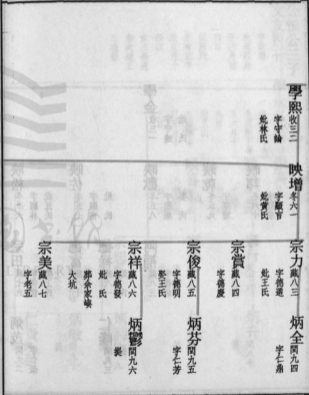 學熙 收三二
字守論
妣林氏
映增 冬六一
字顯官
妣黃氏
宗力 藏八三
字德道
妣王氏
炳全 閏九四
字仁鼎
宗賞 藏八四
字德慶
宗俊 藏八五
字德明
娶王氏
炳芬 閏九五
字仁芳
宗祥 藏八六
字德發
妣 氏
葬余家塽
大坑
炳鬱 閏九六
宗美 藏八七
字老五